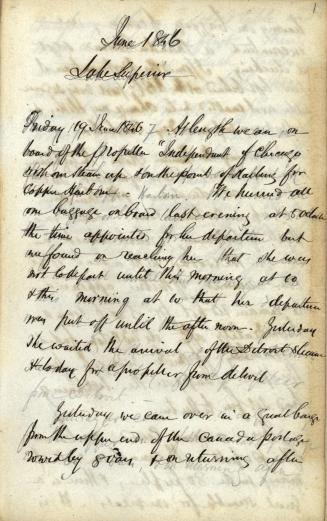 1
June 1846
Lake Superior
Friday 19 June 1846 7 At length we are on
board of the propeller "Independent of Chicago
with our steam up & on the point of starting for
Copper Harbor - Harbor. We hurried all
our baggage on board last evening at 6 oclock
the time appointed for her departure but
we found on reaching her that she was
not to depart until this morning at 10
& this morning at 10 that her departure
was put off until the after noon. Yesterday
she waited the arrival of the Detroit steamer
& to day for a propeller from detroit
Yesterday we came over in a great barge
from the upper end of the Canada Portage
rowed by 8 oars, & on returning after